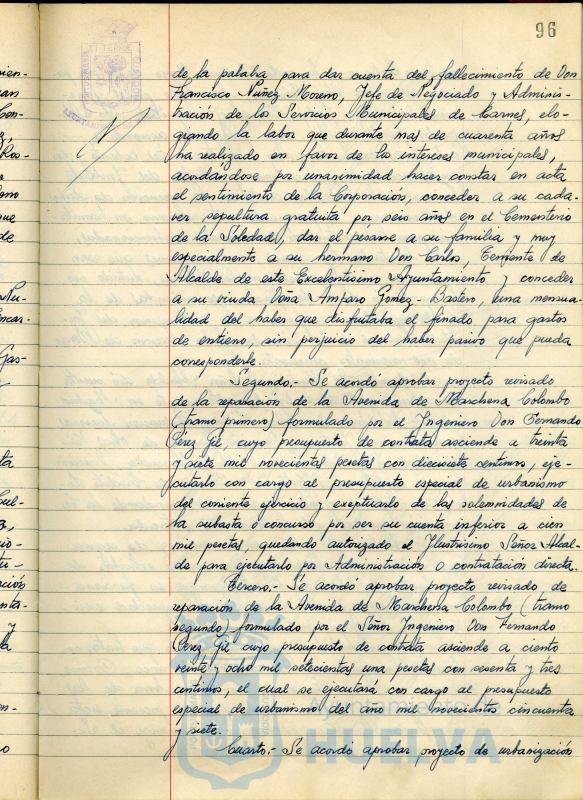 96
de la palabra para dar cuenta del fallecimiento de Don
Francisco Núñez Moreno, Jefe de Negociado y Adminis-
tración de los Servicios Municipales de Carnes, elo-
giando la labor que durante mas de cuarenta años
ha realizado en favor de los intereses municipales,
acordándose por unanimidad hacer constar en acta
el sentimiento de la Corporación, conceder a su cada-
ver sepultura gratuita por seis años en el Cementerio
de la Soledad, dar el pésame a su familia y muy
especialmente a su hermano Don Carlos, Teniente de
Alcalde de este Excelentísimo Ayuntamiento y conceder
a su viuda Doña Amparo Gomez-Bastero, una mensua-
lidad del haber que disfrutaba el finado para gastos
de entierro, sin perjuicio del haber pasivo que pueda
corresponderle.
Segundo.- Se acordó aprobar proyecto revisado
de la reparación de la Avenida de Marchena Colombo
(tramo primero) formulado por el Ingeniero Don Fernando
Pérez Gil, cuyo presupuesto de contrata asciende a treinta
y siete mil novecientas pesetas con dieciseis centimos, eje-
cutarlo con cargo al presupuesto especial de urbanismo
del corriente ejercicio y exceptuarlo de las solemnidades de
la subasta o concurso por ser su cuenta inferior a cien
mil pesetas, quedando autorizado el Ilustrísimo Señor Alcal-
de para ejecutarlo por Administración o contratación directa.
Tercero.- Se acordó aprobar proyecto revisado de
reparación de la Avenida de Marchena Colombo (tramo
segundo) formulado por el Señor Ingeniero Don Fernando
Pérez Gil cuyo presupuesto de contrata asciende a ciento
veinte y ocho mil setecientas una pesetas con sesenta y tres
centimos, el cual se ejecutará con cargo al presupuesto
especial de urbanismo del año mil novecientos cincuenta
y siete.
Cuarto.- Se acordó aprobar proyecto de urbanización
HUELVA